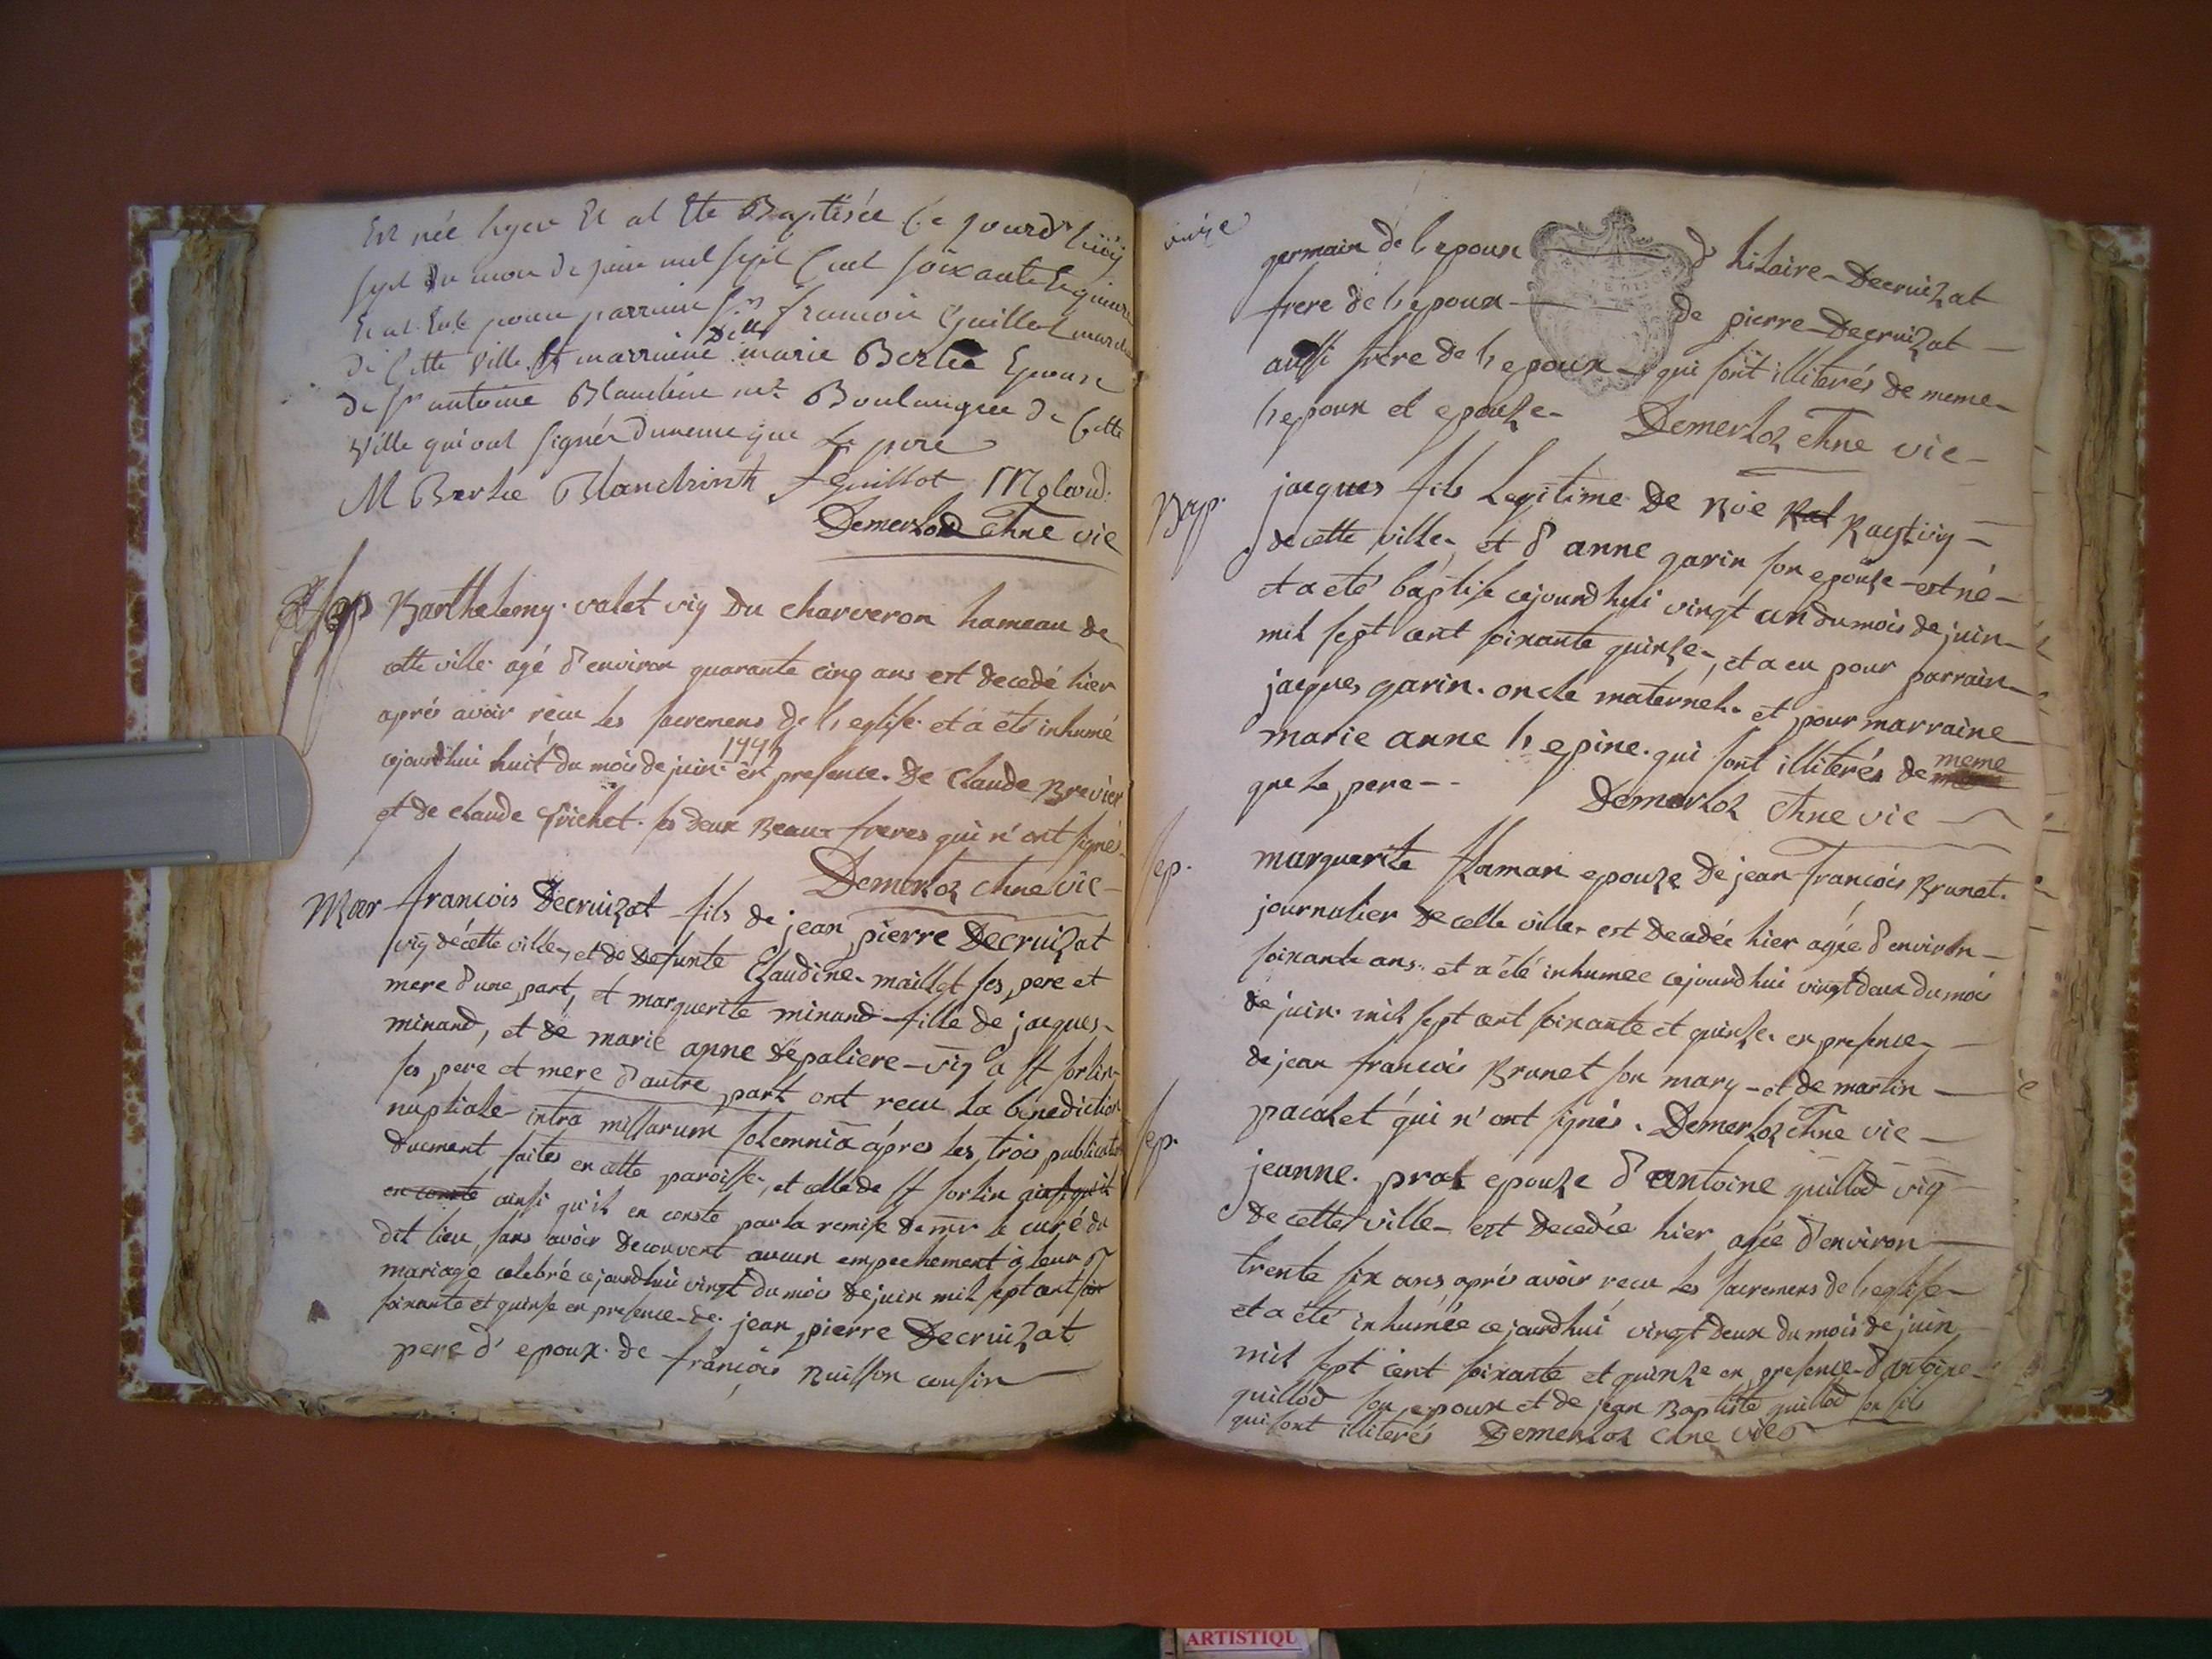 Est née hyer Et at Ete Baptisée Ce jourd'huy
sept du mois de juin mil sept Cent soixante quinze
Et at Eut pour parrain sr francois Guillot
de Cette Ville Et marraine Dlle marie Berlie Epouse
de sr antoine Blanchin mr Boulanger de Cette
Ville qui ont signés dumeme que Le pere
M Berlie Blanchin f Guillot
Demerloz Chne vic
Sep Barthelemy valet vig Du charveron hameau de
cette ville agé d'environ quarante cinq ans est decedé hier
aprés avoir récu les sacremens de l'eglise et a été inhumé
cejourdhui huit du mois de juin 1775 en presence De Claude Brevier
et de claude Grichet ses deux Beaux freres qui n'ont signé
Demerloz chne vic
Mar francois Decruizat fils de jean pierre Decruizat
vig de cette ville, et de Defunte Claudine maillet ses pere et
mere d'une part, et marguerite minand fille de jacques
minand, et de marie anne Dépaliere vig a St sorlin
ses pere et mere d'autre part ont recu la bénediction
nuptiale intra missarum solemnia áprés les trois publicat
duement faites en cette paroisse, et celle de St sorlin ainsi qu'il
en conste ainsi qu'il en conste par la remise de mr le curé du
dit lieu, sans avoir decouvert aucun empechement a leur
mariage celebré cejourdhui vingt du mois de juin mil sept cent soix
soixante et quinse en presence de jean pierre Decruizat
pere d'epoux de françois Ruisson cousin
germain de l'epoux d'hilaire Decruizat
frere de l'epoux de pierre Decruizat
aussi frére de l'epoux qui sont illiterés de meme
l'epoux et epouze Demerloz Chne vic
Bap. jacques fils Legitime de Roie Rat Raytivy
de cette ville, et d'anne garin son epouze est né
et a eté baptisé cejourdhui vingt un du mois de juin
mil sept cent soixante quinze, et a eu pour parrain
jacques garin oncle maternel et pour marraine
marie anne l'epine qui sont illiterés de meme
que le pere Demerloz Chne vic
sep. marguerite flaman epouze de jean francois Brunet
journalier de cette ville est decedée hier agée d'environ
soixante ans et a été inhumee cejourdhui vingt deux du mois
de juin mil sept cent soixante et quinze en presence
de jean francois Brunet son mary et de martin
pacalet qui n'ont signés. Demerloz Chne vic
sep. jeanne prat epouze d'antoine guillod vig
de cette ville est decedée hier agée d'environ
trente six ans aprés avoir recu les sacremens de l'eglise
et a été inhumée cejourdhui vingt deux du mois de juin
mil sept cent soixante et quinze en presence d'antoine
guillod son epoux et de jean Baptiste guillod son fils
qui sont illiterés Demerloz Chne vic
ARTISTIQU